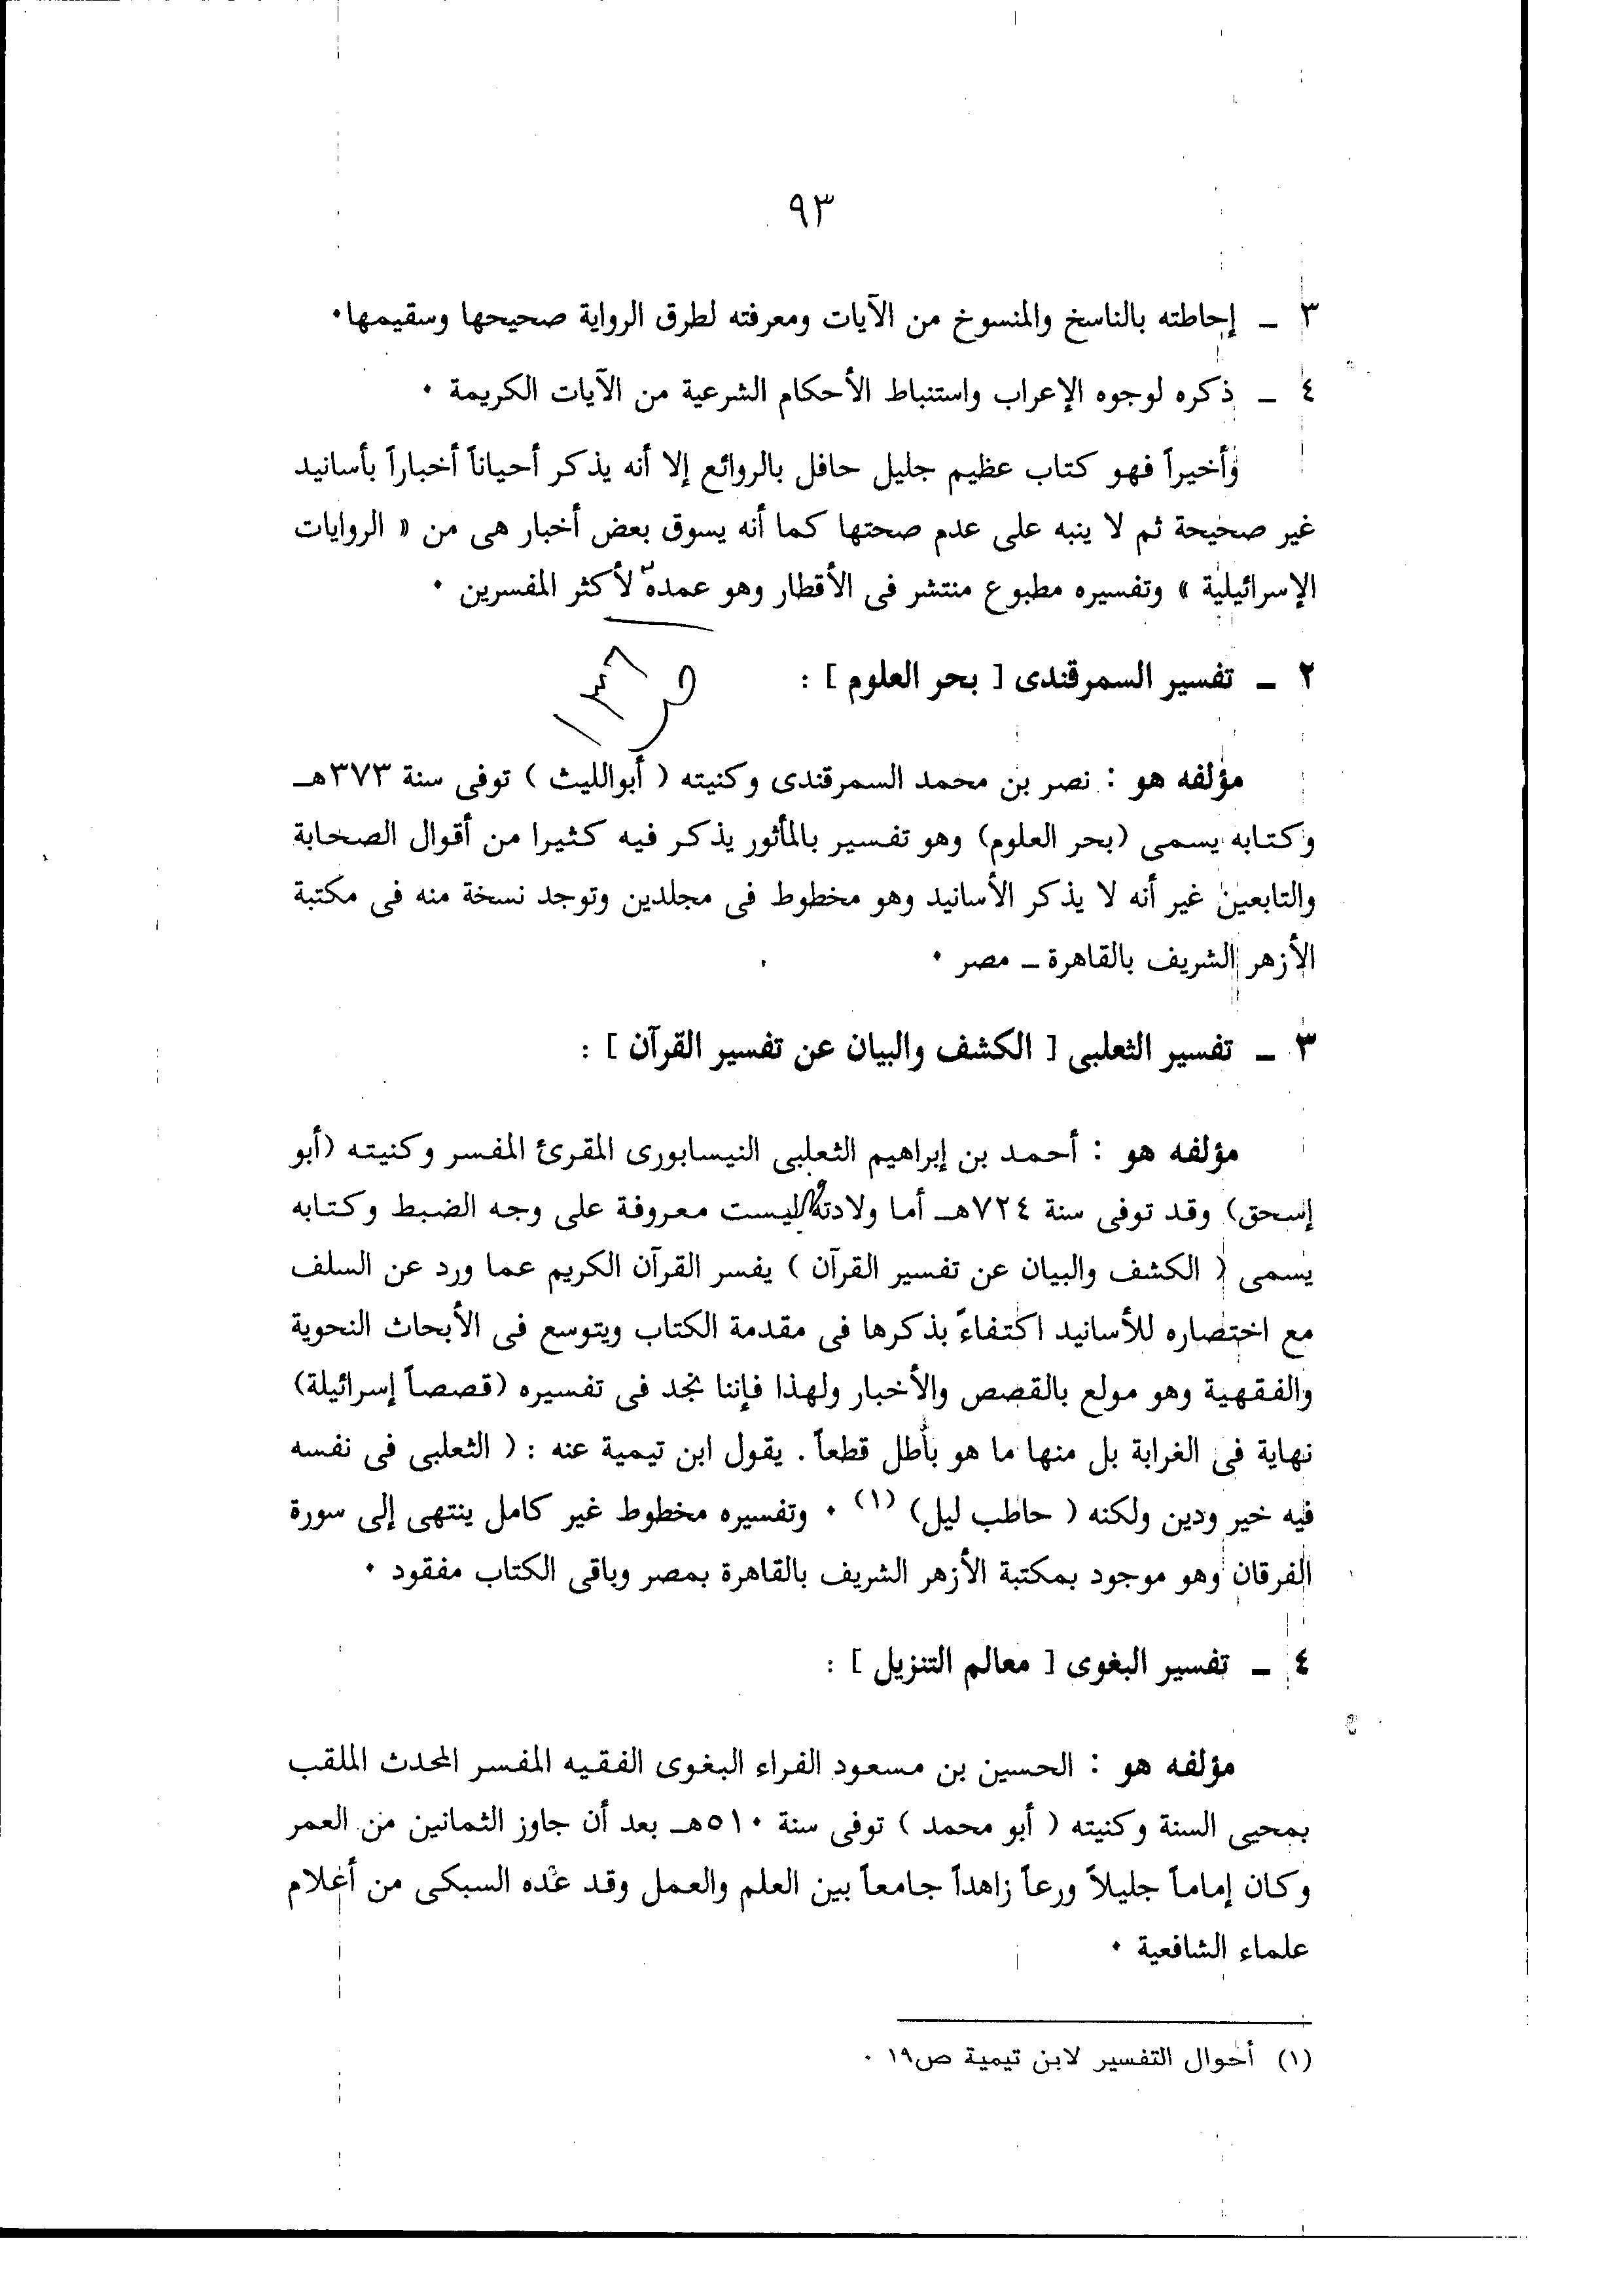 ٩٣
٣ ــ إحاطته بالناسخ والمنسوخ من الآيات ومعرفته لطرق الرواية صحيحها وسقيمها٠
٤ ــ ذكره لوجوه الإعراب واستنباط الأحكام الشرعية من الآيات الكريمة ٠
وأخيراً فهو كتاب عظيم جليل حافل بالروائع إلا أنه يذكر أحياناً أخباراً بأسانيد
غير صحيحة ثم لا ينبه على عدم صحتها كما أنه يسوق بعض أخبار هى من « الروايات
الإسرائيلية » وتفسيره مطبوع منتشر فى الأقطار وهو عمدة لأكثر المفسرين ٠
ص ١٣٦
٢ ــ تفسير السمرقندى [ بحر العلوم ] :
مؤلفه هو : نصر بن محمد السمرقندى وكنيته ( أبوالليث ) توفى سنة ٣٧٣هـ
وكتابه يسمى (بحر العلوم) وهو تفسير بالمأثور يذكر فيه كثيرا من أقوال الصحابة
والتابعين غير أنه لا يذكر الأسانيد وهو مخطوط فى مجلدين وتوجد نسخة منه فى مكتبة
الأزهر الشريف بالقاهرة ــ مصر ٠
٣ ــ تفسير الثعلبى [ الكشف والبيان عن تفسير القرآن ] :
مؤلفه هو : أحمد بن إبراهيم الثعلبى النيسابورى المقرئ المفسر وكنيته (أبو
إسحق) وقد توفى سنة ٧٢٤هـ أما ولادته فليست معروفة على وجه الضبط وكتابه
يسمى ( الكشف والبيان عن تفسير القرآن ) يفسر القرآن الكريم عما ورد عن السلف
مع اختصاره للأسانيد اكتفاءً بذكرها فى مقدمة الكتاب ويتوسع فى الأبحاث النحوية
والفقهية وهو مولع بالقصص والأخبار ولهذا فإننا نجد فى تفسيره (قصصاً إسرائيلة)
نهاية فى الغرابة بل منها ما هو باطل قطعاً . يقول ابن تيمية عنه : ( الثعلبى فى نفسه
فيه خير ودين ولكنه ( حاطب ليل) (١) ٠ وتفسيره مخطوط غير كامل ينتهى إلى سورة
الفرقان وهو موجود بمكتبة الأزهر الشريف بالقاهرة بمصر وباقى الكتاب مفقود ٠
٤ ــ تفسير البغوى [ معالم التنزيل ] :
مؤلفه هو : الحسين بن مسعود الفراء البغوى الفقيه المفسر المحدث الملقب
بمحيى السنة وكنيته ( أبو محمد ) توفى سنة ٥١٠هـ بعد أن جاوز الثمانين من العمر
وكان إماماً جليلاً ورعاً زاهداً جامعاً بين العلم والعمل وقد عده السبكى من أعلام
علماء الشافعية ٠
(١) أحوال التفسير لابن تيمية ص١٩ .